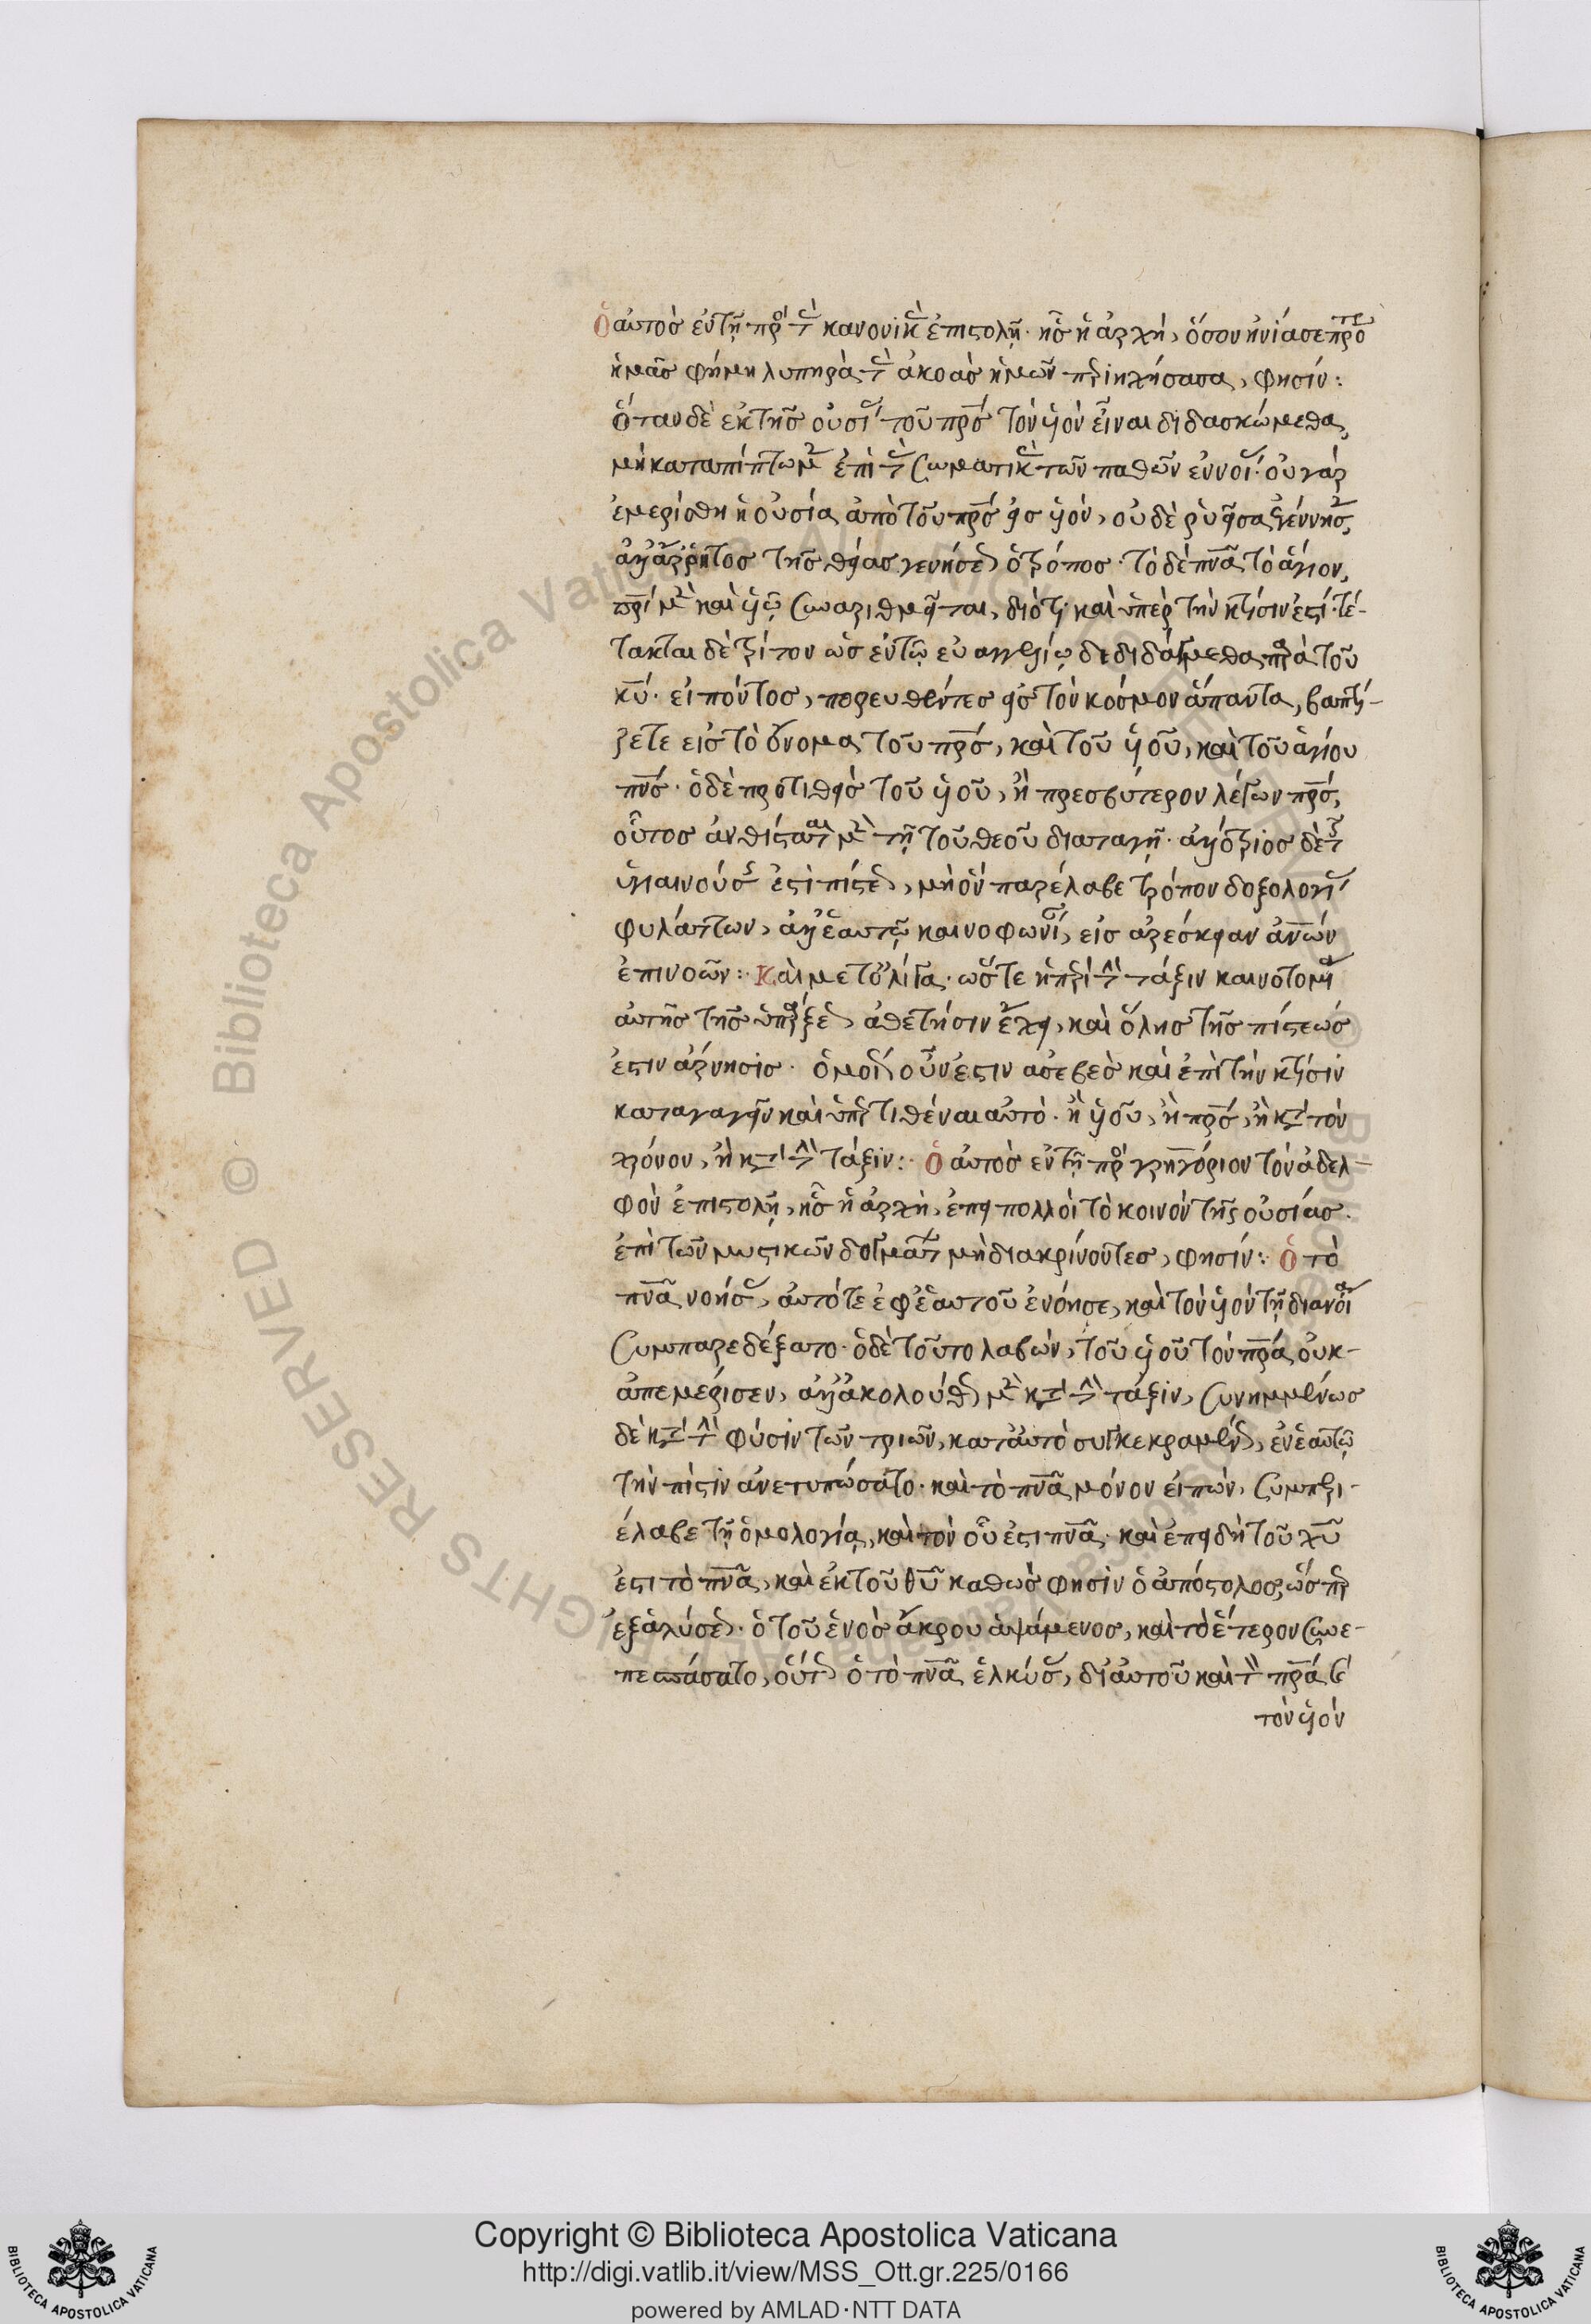 Ὁ αὐτὸς ἐν τῇ πρὸς τὰς κανονικὰς ἐπιστολῇ· ἧς ἡ ἀρχή, ὅσον ἠνίασε πρότε
ἡμᾶς φήμη λυπηρὰ τὰς ἀκοὰς ἡμῶν περιηχήσασα, φησίν:
Ὅταν δὲ ἐκ τῆς οὐσίας τοῦ πρς τὸν υἱὸν εἶναι διδασκώμεθα,
μὴ καταπίπτωμεν ἐπὶ τὰς σωματικὰς τῶν παθῶν ἐννοίας· οὐ γὰρ
ἐμερίσθη ἡ οὐσία ἀπὸ τοῦ πρς εἰς υἱόν, οὐδὲ ῥυεῖσα ἐγέννησεν,
ἀλλ' ἄρρητος τῆς θείας γεννήσεως ὁ τρόπος· τὸ δὲ πνα τὸ ἅγιον,
πρι μὲν καὶ υἱῷ συναριθμεῖται, διότι καὶ ὑπὲρ τὴν κτίσιν ἐστί· τέ-
τακται δὲ τρίτον ὡς ἐν τῷ εὐαγγελίῳ δεδιδάγμεθα παρὰ τοῦ
κυ· εἰπόντος, πορευθέντες εἰς τὸν κόσμον ἅπαντα, βαπτί-
ζετε εἰς τὸ ὄνομα τοῦ πρς, καὶ τοῦ υἱοῦ, καὶ τοῦ ἁγίου
πνς· ὁ δὲ προτιθεὶς τοῦ υἱοῦ, ἢ πρεσβύτερον λέγων πρς,
οὗτος ἀνθίσταται μὲν τῇ τοῦ θεοῦ διαταγῇ· ἀλλότριος δὲ τῆς
ὑγιαινούσης ἐστὶ πίστεως, μὴ ὃν παρέλαβε τρόπον δοξολογίας
φυλάττων, ἀλλ' ἑαυτῷ καινοφωνίας, εἰς ἀρέσκειαν ἀνων
ἐπινοῶν: Καὶ μετ' ὀλίγα· ὥστε ἡ περὶ τὴν τάξιν καινοτομία
αὐτῆς τῆς ὑπάρξεως ἀθέτησιν ἔχει, καὶ ὅλης τῆς πίστεώς
ἐστιν ἄρνησις· ὁμοίως οὖν ἐστιν ἀσεβὲς καὶ ἐπὶ τὴν κτίσιν
καταγαγεῖν καὶ ὑπερτιθέναι αὐτό· ἢ υἱοῦ, ἢ πρς, ἢ κατὰ τὸν
χρόνον, ἢ κατὰ τὴν τάξιν: Ὁ αὐτὸς ἐν τῇ πρὸς γρηγόριον τὸν ἀδελ-
φὸν ἐπιστολῇ, ἧς ἡ ἀρχή, ἐπεὶ πολλοὶ τὸ κοινὸν τῆς οὐσίας
ἐπὶ τῶν μυστικῶν δογμάτων μὴ διακρίνοντες, φησίν: Ὁ τὸ
πνα νοήσας, αὐτό τε ἐφ' ἑαυτοῦ ἐνόησε, καὶ τὸν υἱὸν τῇ διανοίᾳ
συμπαρεδέξατο· ὁ δὲ τοῦτο λαβών, τοῦ υἱοῦ τὸν πρα οὐκ-
ἀπεμέρισεν, ἀλλ' ἀκολούθως μὲν κατὰ τὴν τάξιν, συνημμένως
δὲ κατὰ τὴν φύσιν τῶν τριῶν, κατ' αὐτὸ συγκεκραμένως, ἐν ἑαυτῷ
τὴν πίστιν ἀνετυπώσατο· καὶ τὸ πνα μόνον εἰπών, συμπερι-
έλαβε τῇ ὁμολογίᾳ, καὶ τὸν οὗ ἐστι πνα· καὶ ἐπειδὴ τοῦ χυ
ἐστι τὸ πνα, καὶ ἐκ τοῦ θυ καθὼς φησὶν ὁ ἀπόστολος, ὥσπερ
ἐξ ἁλύσεως· ὁ τοῦ ἑνὸς ἄκρου ἁψάμενος, καὶ τὸ ἕτερον συνε-
πεσπάσατο, οὕτως ὁ τὸ πνα ἑλκύσας, δι' αὐτοῦ καὶ τὸν πρα καὶ
τὸν υἱὸν
Copyright © Biblioteca Apostolica Vaticana
http://digi.vatlib.it/view/MSS_Ott.gr.225/0166
powered by AMLAD·NTT DATA